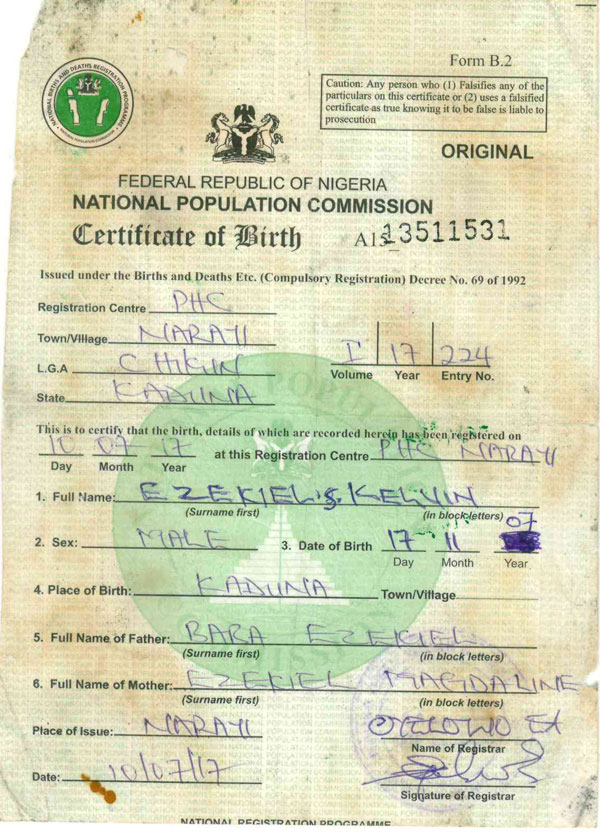 NATIONAL BIRTHS AND DEATHS REGISTRATION PROGRAMME
Form B.2
Caution: Any person who (1) Falsifies any of the
particulars on this certificate or (2) uses a falsified
certificate as true knowing it to be false is liable to
prosecution
ORIGINAL
FEDERAL REPUBLIC OF NIGERIA
NATIONAL POPULATION COMMISSION
Certificate of Birth 13511531
Issued under the Births and Deaths Etc. (Compulsory Registration) Decree No. 69 of 1992
Registration Centre PHC
Town/Village NARAYI
L.G.A CHIKUN
State KADUNA
I 17 224
Volume Year Entry No.
This is to certify that the birth, details of which are recorded herein has been registered on
10 07 17 at this Registration Centre PHC NARAYI
Day Month Year
1. Full Name: EZEKIEL KELVIN
(Surname first) (in block letters)
2. Sex: MALE 3. Date of Birth 17 11 07
Day Month Year
4. Place of Birth: KADUNA Town/Village
5. Full Name of Father: BABA EZEKIEL
(Surname first) (in block letters)
6. Full Name of Mother: EZEKIEL MAGDALINE
(Surname first) (in block letters)
Place of Issue: NARAYI
Name of Registrar
Date: 10/07/17
Signature of Registrar
NATIONAL REGISTRATION PROGRAMME